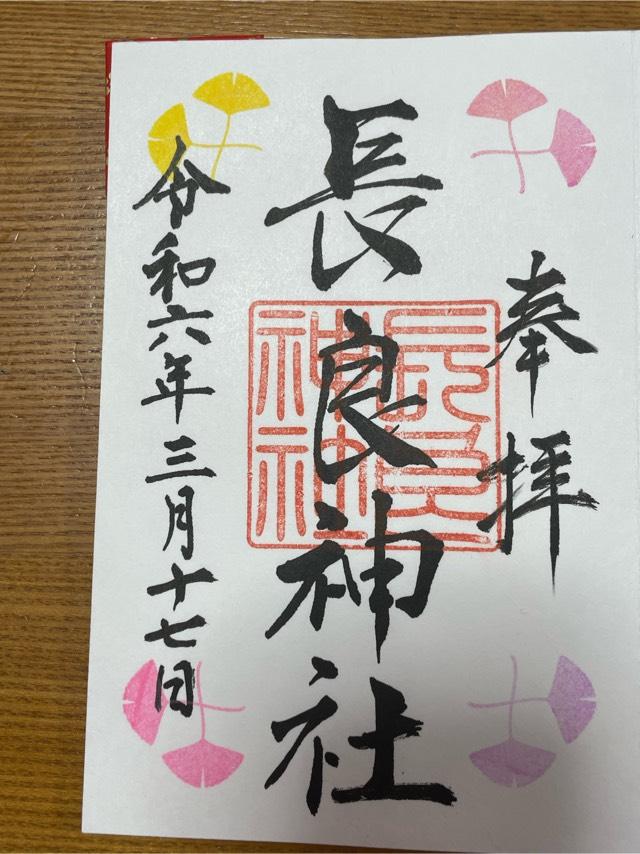 奉拝
長良神社
長良神社
令和六年三月十七日